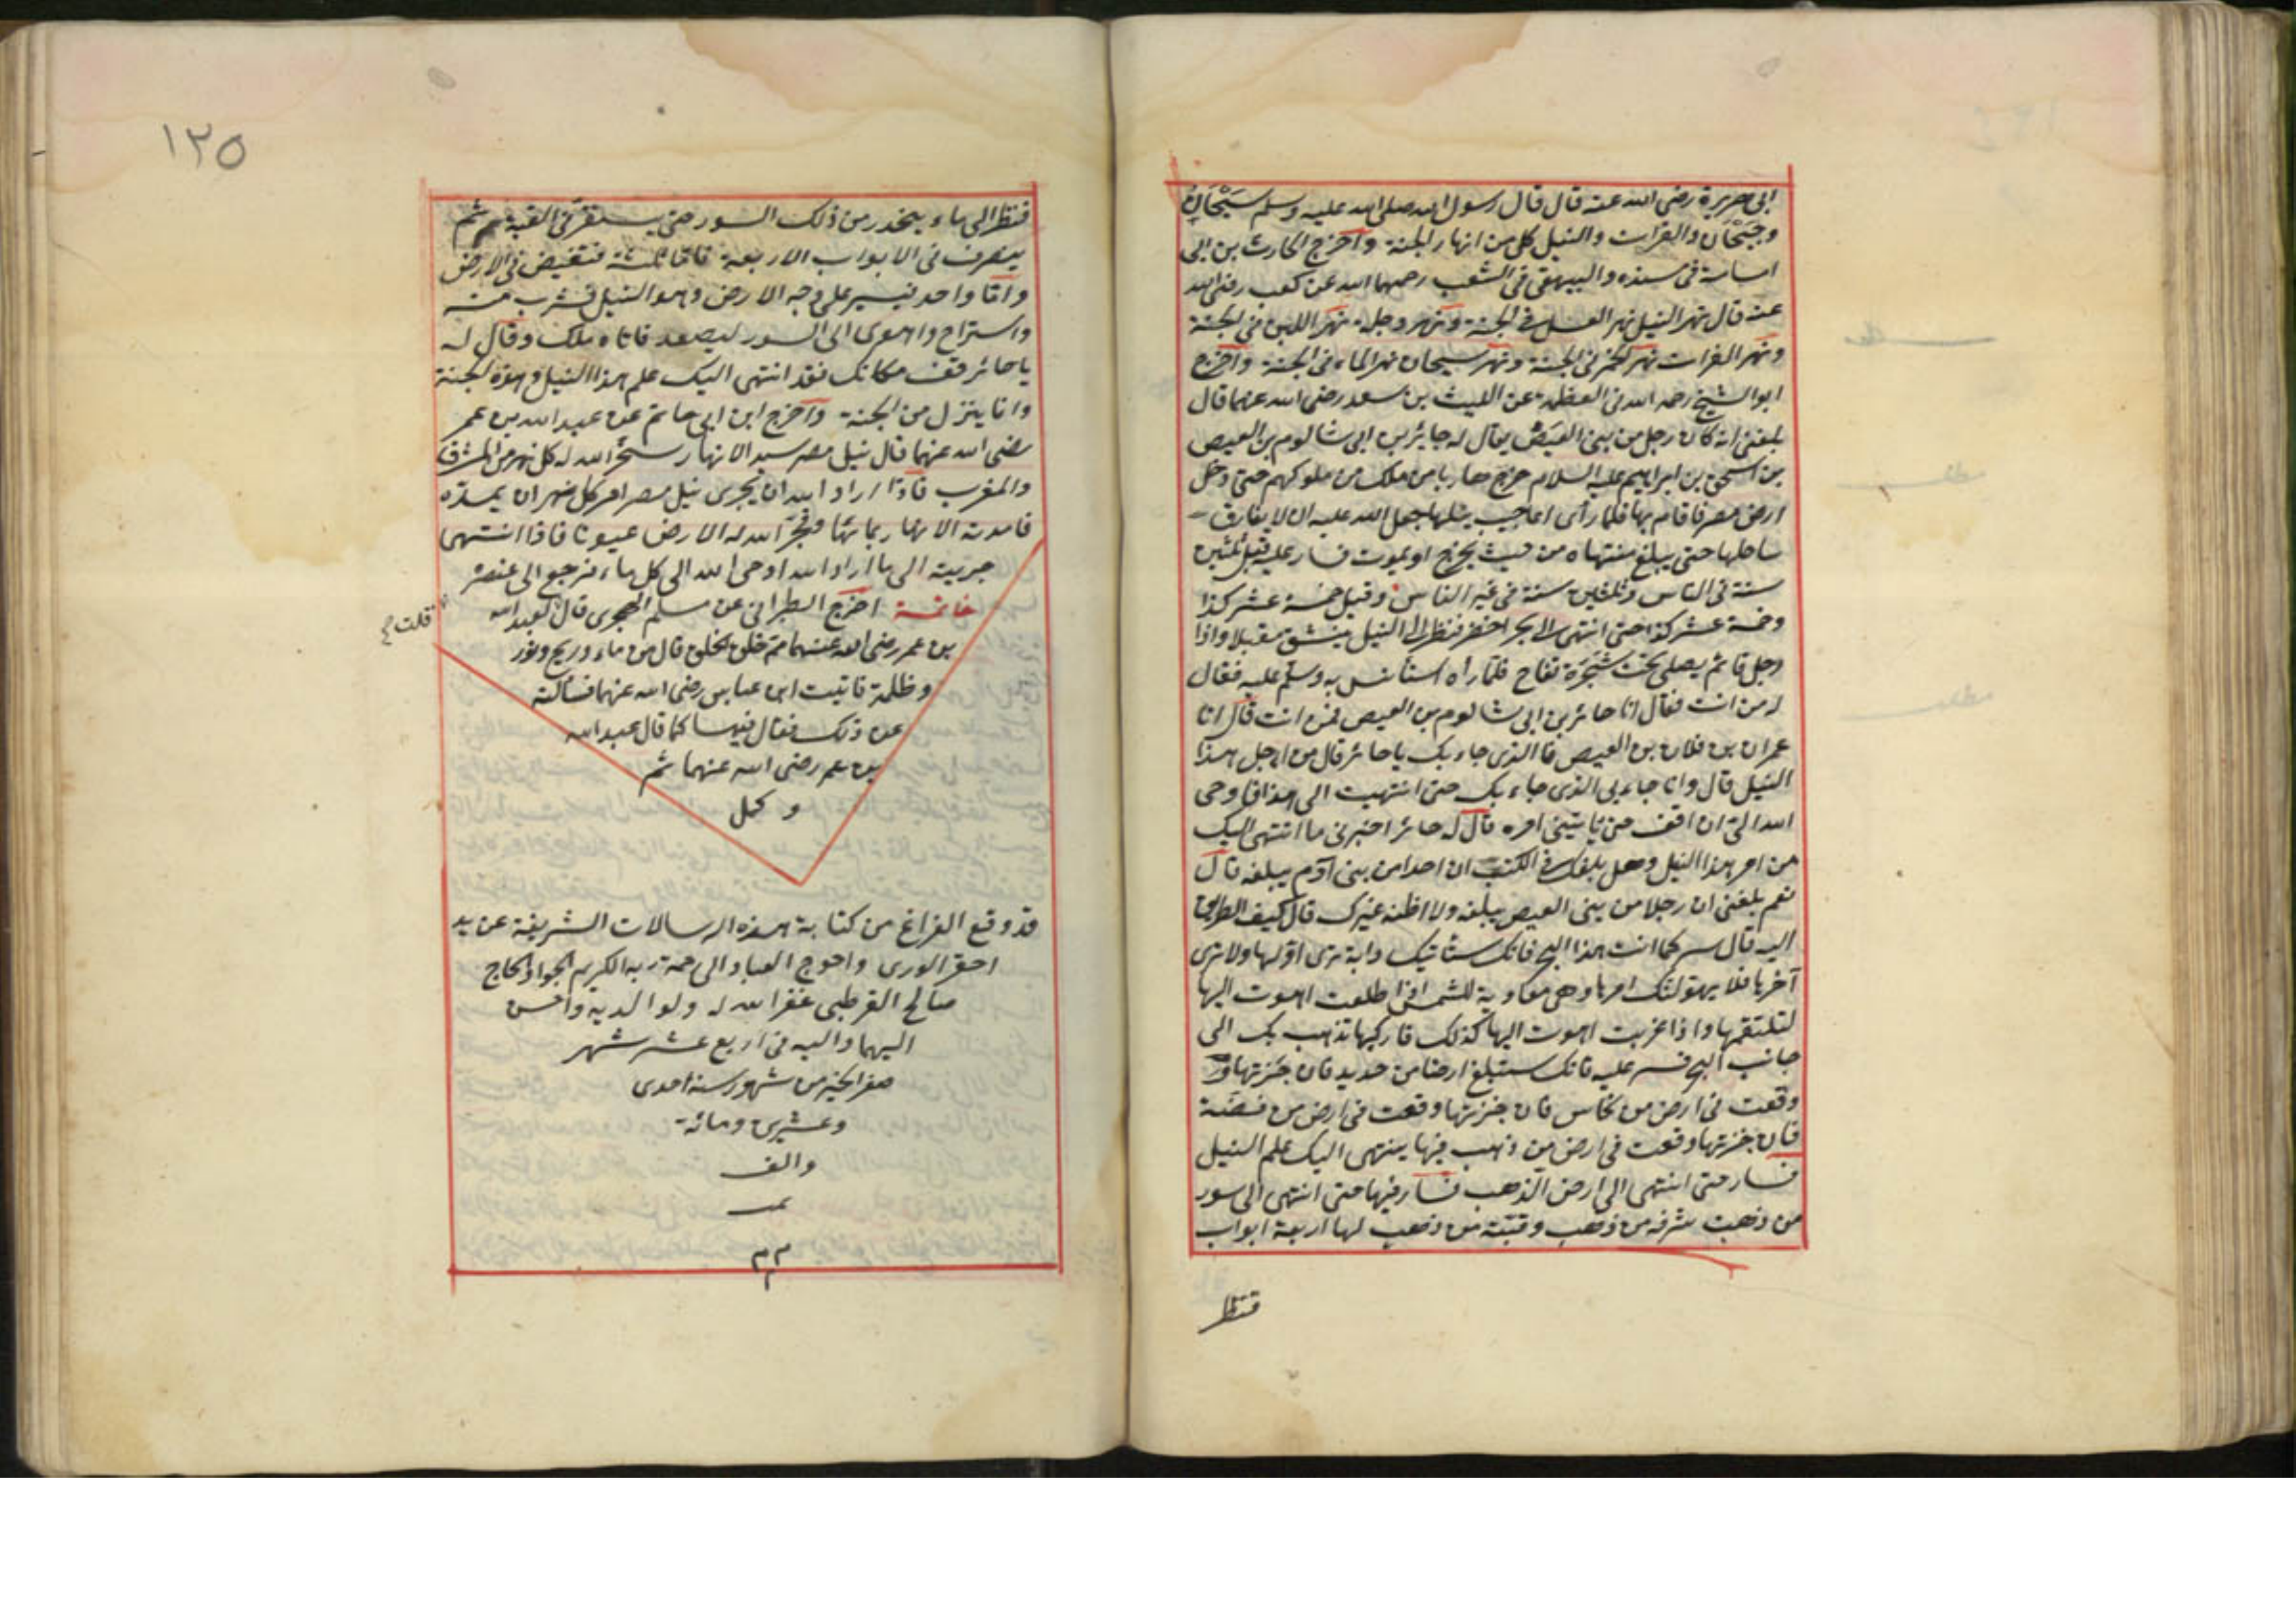 ابى هريرة رضى الله عنه قال قال رسول الله صلى الله عليه وسلم سَيْحَانُ
وجَيْحَان والفرات والنيل كل من انهار الجنة واخرج الحارث بن ابى
اسامة فى مسنده والبيهقى فى الشعب رحمهما الله عن كعب رضى الله
عنه قال نهر النيل نهر العسل فى الجنة ونهر دجلة نهر اللبن فى الجنة
ونهر الفرات نهر الخمر فى الجنة ونهر سيحان نهر الماء فى الجنة واخرج
ابو الشيخ رحمه الله فى العظمة عن الليث بن سعد رضى الله عنهما قال
بلغنى انه كان رجل من بنى العيص يقال له حايز بن ابى شالوم بن العيص
بن اسحق بن ابراهيم عليه السلام خرج هاربا من ملك من ملوكهم حتى دخل
ارض مصر فاقام بها فلما رأى اعاجيب نيلها جعل الله عليه ان لا يفارق
ساحلها حتى يبلغ منتهاه من حيث يخرج او يموت فسار عليه قيل ثلثين
سنة فى الناس وثلثين سنة فى غير الناس وقيل خمسة عشر كذا
وخمسة عشر كذا حتى انتهى الى بحر اخضر فنظر الى النيل ينشق مقبلا واذا
رجل قائم يصلى تحت شَجَرَة تفاح فلما رآه استأنس به وسلم عليه فقال
له من انت فقال انا حائز بن ابى شالوم بن العيص فمن انت قال انا
عمران بن فلان بن العيص فما الذى جاء بك يا حائز قال من اجل هذا
النيل قال وانا جاء بى الذى جاء بك حتى انتهيت الى هذا فاوحى
الله الىّ ان اقف حتى ياتينى امره قال له حائز اخبرنى ما انتهى اليك
من امر هذا النيل وهل بلغك فى الكتب ان احدا من بنى آدم يبلغه قال
نعم بلغنى ان رجلا من بنى العيص يبلغه ولا اظنه غيرك قال كيف الطريق
اليه قال سر كما انت هذا البحر فانك ستأتيك دابة ترى اولها ولا ترى
آخرها فلا يهولنك امرها وهى معادية للشمس اذا طلعت اهوت اليها
لتلتقمها واذا غربت اهوت اليها كذلك فاركبها تذهب بك الى
جانب البحر فسر عليه فانك ستبلغ ارضا من حديد فان جزتها
وقعت فى ارض من نحاس فان جزتها وقعت فى ارض من فضة
فان جزتها وقعت فى ارض من ذهب فيها ينتهى اليك علم النيل
فسار حتى انتهى الى ارض الذهب فسار فيها حتى انتهى الى سور
من ذهب شرفه من ذهب وقبّة من ذهب لها اربعة ابواب
فنظر
١٢٥
فنظر الى ماء ينحدر من ذلك السور حتى يستقر فى القبة ثم
ينصرف فى الابواب الاربعة فامّا ثلثة فتغيض فى الارض
وامّا واحد فيسير على وجه الارض وهو النيل فشرب منه
واستراح واهوى الى السور ليصعد فاتاه ملك وقال له
يا حائز قف مكانك فقد انتهى اليك علم هذا النيل وهذه الجنة
وانا ينزل من الجنة واخرج ابن ابى حاتم عن عبد الله بن عمر
رضى الله عنهما قال نيل مصر سيد الانهار سخّر الله له كل نهر من المشرق
والمغرب فاذا اراد الله ان يجرى نيل مصر امر كل نهر ان يمدّه
فامدته الانهار بمائها وفجّر الله له الارض عيونا فاذا انتهى
جريته الى ما اراد الله اوحى الله الى كل ماء فرجع الى عنصره
خاتمة اخرج الطبرانى عن مسلم الهجرى قال قلت لعبد الله
بن عمر رضى الله عنهما ممّ خلق الخلق قال من ماء وريح ونور
وظلمة فاتيت ابن عباس رضى الله عنهما فسألته
عن ذلك فقال فيها كما قال عبد الله
بن عمر رضى الله عنهما تم
و كمل
قد وقع الفراغ من كتابة هذه الرسالات الشريفة عن يد
احقر الورى واحوج العباد الى رحمة ربه الكريم الجواد الحاج
صالح القرطبى غفر الله له ولوالديه واحسن
اليهما واليه فى اربع عشر شهر
صفر الخير من شهور سنة احدى
وعشرين ومائة
والف
تمت
م م م